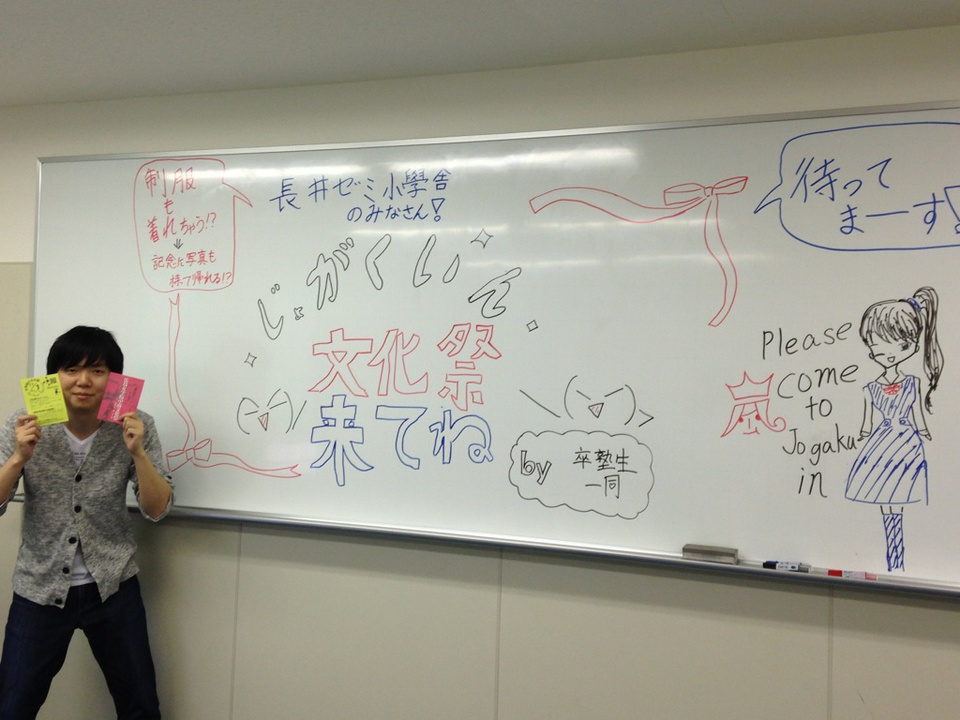 制服
も
着れちゃう!?
↓
記念に写真も
持って帰れる!?
長井ゼミ小學舎
のみなさん!
じょがくいんで
文化祭
来てね
by 卒塾生
一同
待って
まーす!
Please
come
to
Jogaku
in
嵐